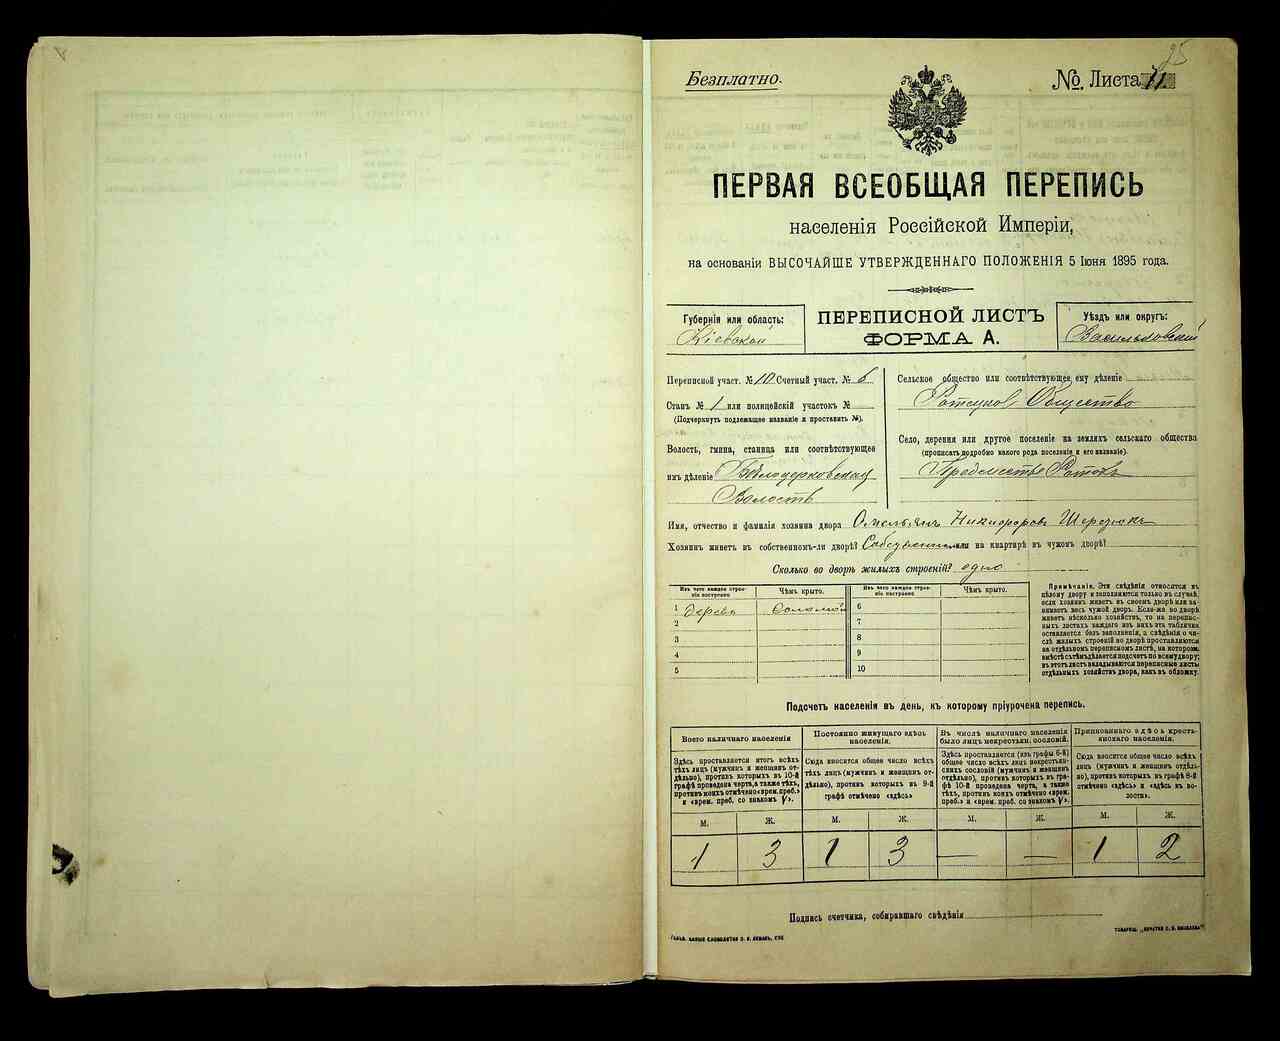 25
Безплатно.
№. Листа 71.
ПЕРВАЯ ВСЕОБЩАЯ ПЕРЕПИСЬ
населенія Россійской Имперіи,
на основаніи ВЫСОЧАЙШЕ УТВЕРЖДЕННАГО ПОЛОЖЕНІЯ 5 Іюня 1895 года.
Губернія или область:
Кіевская
ПЕРЕПИСНОЙ ЛИСТЪ
ФОРМА А.
Уѣздъ или округъ:
Васильковскій
Переписной участ. № 10 Счетный участ. № 6
Станъ № 1 или полицейскій участокъ №
(Подчеркнуть подлежащее названіе и проставить №).
Волость, гмина, станица или соотвѣтствующее
имъ дѣленіе Бѣлоцерковская
Волость
Сельское общество или соотвѣтствующее ему дѣленіе
Общество
Село, деревня или другое поселеніе на земляхъ сельскаго общества
(прописать подробно какого рода поселеніе и его названіе).
Предмѣстье Ротокъ
Имя, отчество и фамилія хозяина двора Омельянъ Никифоровъ
Хозяинъ живетъ въ собственномъ-ли дворѣ? или на квартирѣ въ чужомъ дворѣ?
Сколько во дворѣ жилыхъ строеній? одно
Изъ чего каждое строеніе построено
Чѣмъ крыто.
Изъ чего каждое строеніе построено
Чѣмъ крыто.
1 дерева Соломой 6
2 7
3 8
4 9
5 10
Примѣчаніе. Эти свѣдѣнія относятся къ
цѣлому двору и заполняются только въ случаѣ,
если хозяинъ живетъ въ своемъ дворѣ или занимаетъ
весь чужой дворъ. Если-же во дворѣ
живетъ нѣсколько хозяйствъ, то на переписныхъ
листахъ каждаго изъ нихъ эта табличка
оставляется безъ заполненія, а свѣдѣнія о числѣ
жилыхъ строеній во дворѣ проставляются
на отдѣльномъ переписномъ листѣ, на которомъ
вмѣстѣ съ тѣмъ дѣлается подсчетъ по всему двору;
въ этотъ листъ вкладываются переписные листы
отдѣльныхъ хозяйствъ двора, какъ въ обложку.
Подсчетъ населенія въ день, къ которому пріурочена перепись.
Всего наличнаго населенія
Здѣсь проставляется итогъ всѣхъ
тѣхъ лицъ (мужчинъ и женщинъ отдѣльно),
противъ которыхъ въ 10-й
графѣ проведена черта, а также тѣхъ,
противъ коихъ отмѣчено «врем. преб.»
и «врем. преб. со знакомъ V».
Постоянно живущаго здѣсь
населенія.
Сюда вносится общее число всѣхъ
тѣхъ лицъ (мужчинъ и женщинъ отдѣльно),
противъ которыхъ въ 9-й
графѣ отмѣчено «здѣсь»
Въ числѣ наличнаго населенія
было лицъ некрестьян. сословій.
Здѣсь проставляется (изъ графы 6-й)
общее число всѣхъ некрестьянскихъ
сословій (мужчинъ и женщинъ
отдѣльно), противъ которыхъ въ графѣ
10-й проведена черта, а также
тѣхъ, противъ коихъ отмѣчено «врем.
преб.» и «врем. преб. со знакомъ V».
Приписаннаго здѣсь крестьянскаго
населенія.
Сюда вносится общее число всѣхъ
лицъ (мужчинъ и женщинъ отдѣльно),
противъ которыхъ въ графѣ 8-й
отмѣчено «здѣсь» и «здѣсь въ волости».
М. Ж. М. Ж. М. Ж. М. Ж.
1 3 1 3 — — 1 2
Подпись счетчика, собиравшаго свѣдѣнія